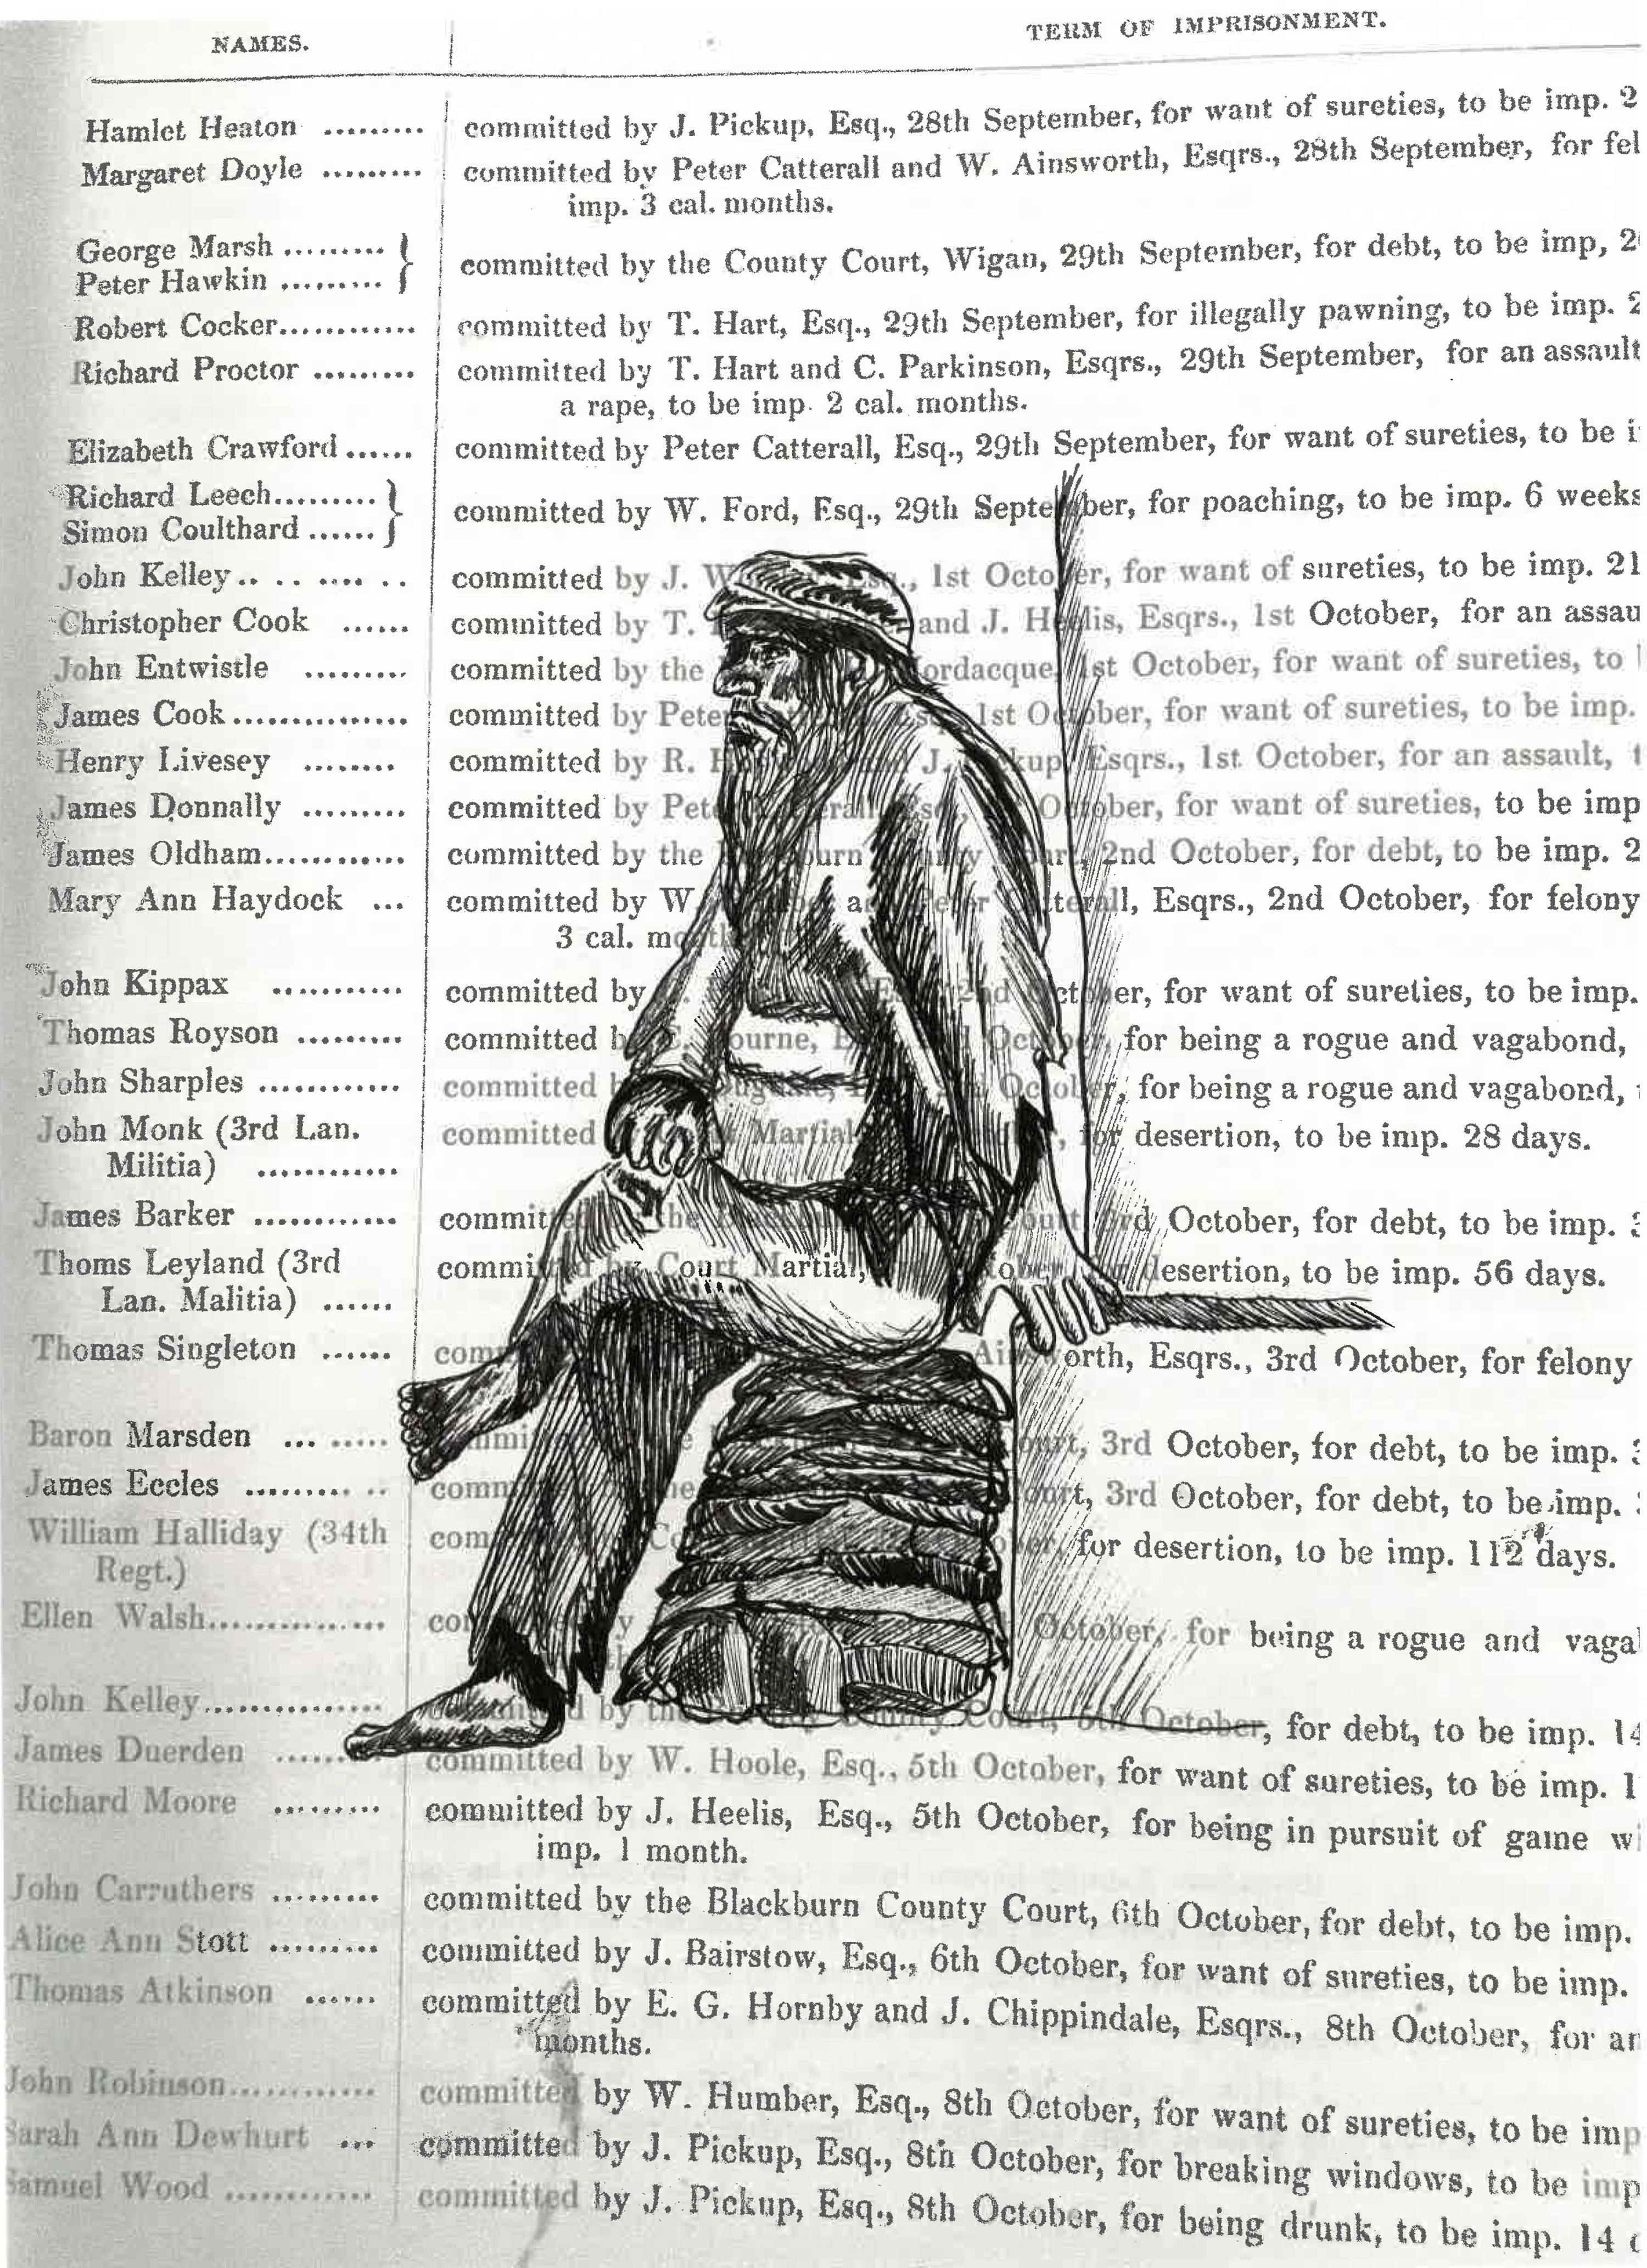 NAMES. TERM OF IMPRISONMENT.
Hamlet Heaton ......... committed by J. Pickup, Esq., 28th September, for want of sureties, to be imp. 2
Margaret Doyle ......... committed by Peter Catterall and W. Ainsworth, Esqrs., 28th September, for fel
imp. 3 cal. months.
George Marsh .........
Peter Hawkin ......... committed by the County Court, Wigan, 29th September, for debt, to be imp, 2
Robert Cocker............ committed by T. Hart, Esq., 29th September, for illegally pawning, to be imp. 2
Richard Proctor ......... committed by T. Hart and C. Parkinson, Esqrs., 29th September, for an assault
a rape, to be imp. 2 cal. months.
Elizabeth Crawford ...... committed by Peter Catterall, Esq., 29th September, for want of sureties, to be i
Richard Leech.........
Simon Coulthard ...... committed by W. Ford, Esq., 29th September, for poaching, to be imp. 6 weeks
John Kelley.. .. .... .. committed by J. W Esq., 1st October, for want of sureties, to be imp. 21
Christopher Cook ...... committed by T. and J. Heelis, Esqrs., 1st October, for an assau
John Entwistle ......... committed by the ordacque, 1st October, for want of sureties, to
James Cook............... committed by Peter Esq., 1st October, for want of sureties, to be imp.
Henry Livesey ........ committed by R. J. Pickup, Esqrs., 1st October, for an assault, t
James Donnally ......... committed by Peter Catterall, Esq., 1st October, for want of sureties, to be imp
James Oldham............ committed by the Blackburn County Court, 2nd October, for debt, to be imp. 2
Mary Ann Haydock ... committed by W and Peter Catterall, Esqrs., 2nd October, for felony
3 cal. months
John Kippax ........... committed by 2nd October, for want of sureties, to be imp.
Thomas Royson ......... committed by October, for being a rogue and vagabond,
John Sharples ............ committed October, for being a rogue and vagabond,
John Monk (3rd Lan.
Militia) ............ committed Martial for desertion, to be imp. 28 days.
James Barker ............ committed by the Blackburn County Court, 3rd October, for debt, to be imp. 3
Thoms Leyland (3rd
Lan. Malitia) ...... committed by Court Martial, October, for desertion, to be imp. 56 days.
Thomas Singleton ...... com Ainsworth, Esqrs., 3rd October, for felony
Baron Marsden ... ..... Court, 3rd October, for debt, to be imp. 3
James Eccles ......... .. comm Court, 3rd October, for debt, to be imp.
William Halliday (34th
Regt.) com for desertion, to be imp. 112 days.
Ellen Walsh............... October, for being a rogue and vaga
John Kelley............... committed by the County Court, 5th October, for debt, to be imp. 14
James Duerden ......... committed by W. Hoole, Esq., 5th October, for want of sureties, to be imp. 1
Richard Moore ......... committed by J. Heelis, Esq., 5th October, for being in pursuit of game wi
imp. 1 month.
John Carruthers ......... committed by the Blackburn County Court, 6th October, for debt, to be imp.
Alice Ann Stott ......... committed by J. Bairstow, Esq., 6th October, for want of sureties, to be imp.
Thomas Atkinson ...... committed by E. G. Hornby and J. Chippindale, Esqrs., 8th October, for an
months.
John Robinson............ committed by W. Humber, Esq., 8th October, for want of sureties, to be imp
Sarah Ann Dewhurt ... committed by J. Pickup, Esq., 8th October, for breaking windows, to be imp
Samuel Wood ............ committed by J. Pickup, Esq., 8th October, for being drunk, to be imp. 14